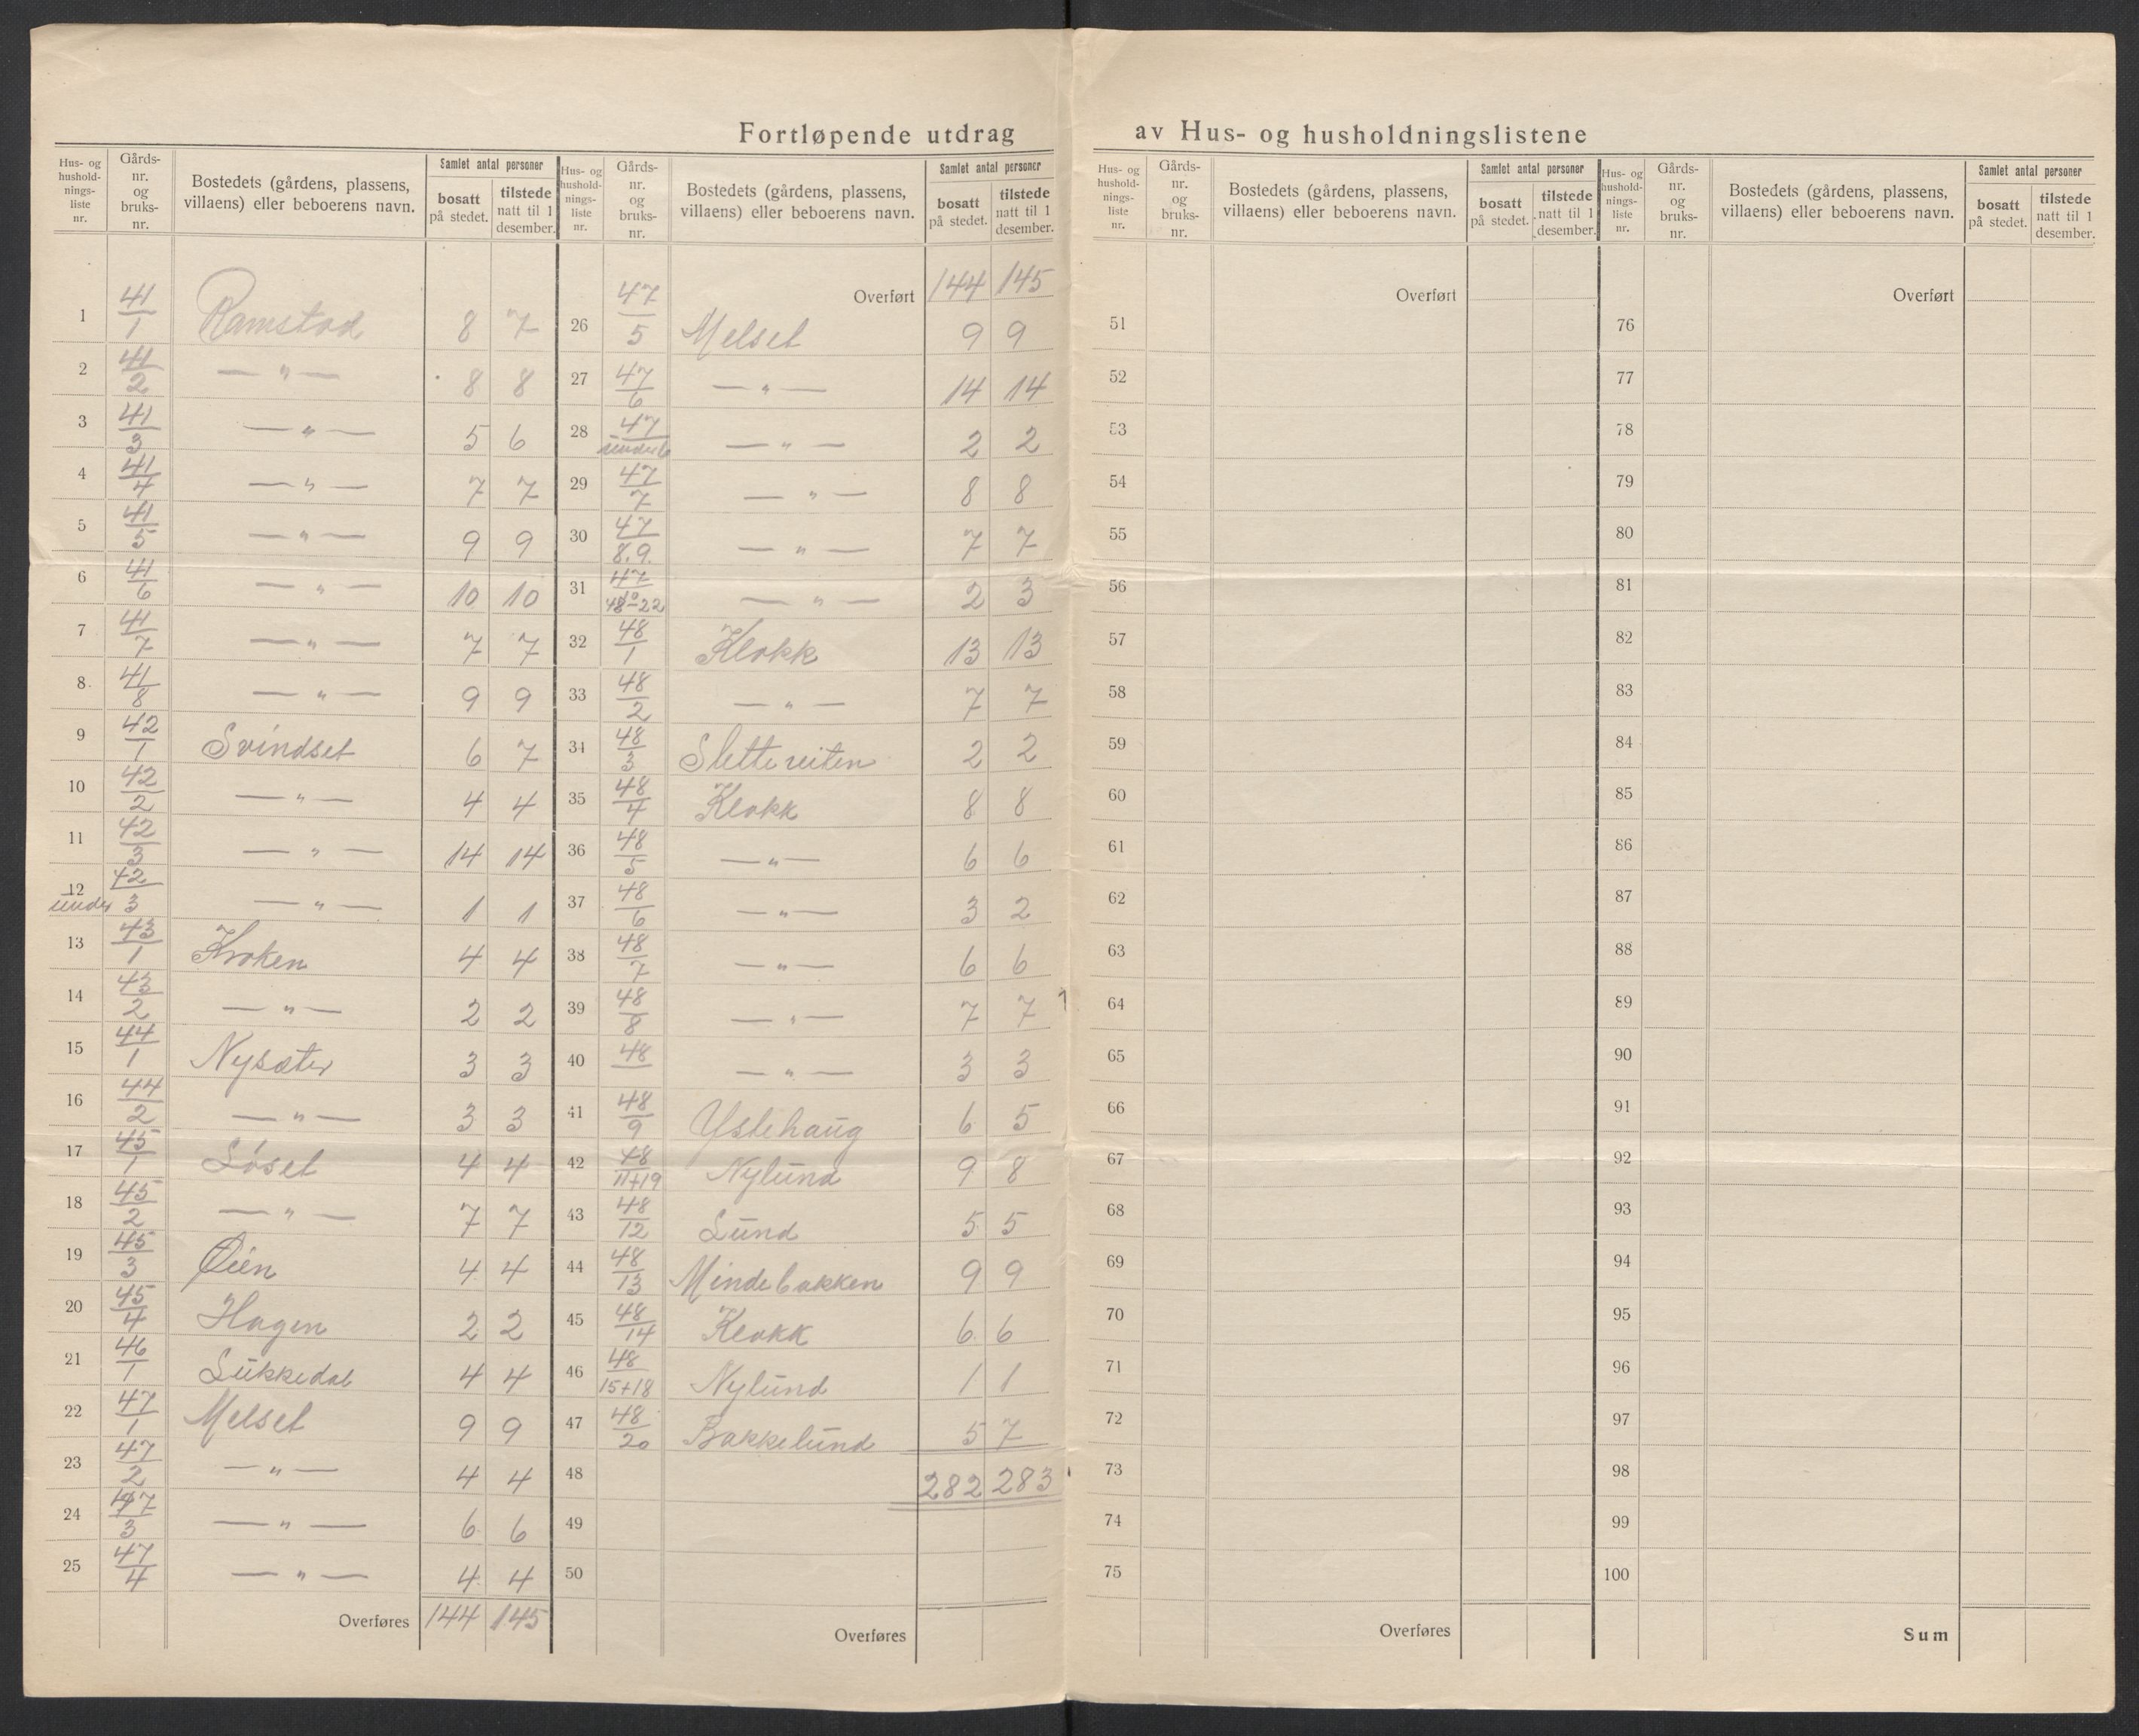 Fortløpende utdrag av Hus- og husholdningslistene
Hus- og hushold-nings-liste nr. | Gårds-nr. og bruks-nr. | Bostedets (gårdens, plassens, villaens) eller beboerens navn. | Samlet antal personer | bosatt på stedet. | tilstede natt til 1 desember.
1 41/1 Ramstad 8 7
2 41/2 — " — 8 8
3 41/3 — " — 5 6
4 41/4 — " — 7 7
5 41/5 — " — 9 9
6 41/6 — " — 10 10
7 41/7 — " — 7 7
8 41/8 — " — 9 9
9 42/1 Svindset 6 7
10 42/2 — " — 4 4
11 42/3 — " — 14 14
12 under 42/3 — " — 1 1
13 43/1 Kroken 4 4
14 43/2 — " — 2 2
15 44/1 Nysæter 3 3
16 44/2 — " — 3 3
17 45/1 Løset 4 4
18 45/2 — " — 7 7
19 45/3 Øien 4 4
20 45/4 Hagen 2 2
21 46/1 Lukkedal 4 4
22 47/1 Melset 9 9
23 47/2 — " — 4 4
24 47/3 — " — 6 6
25 47/4 — " — 4 4
Overføres 144 145
Hus- og hushold-nings-liste nr. | Gårds-nr. og bruks-nr. | Bostedets (gårdens, plassens, villaens) eller beboerens navn. | Samlet antal personer | bosatt på stedet. | tilstede natt til 1 desember.
Overført 144 145
26 47/5 Melset 9 9
27 47/6 — " — 14 14
28 47/under 6 — " — 2 2
29 47/7 — " — 8 8
30 47/8.9. — " — 7 7
31 47/10 48-22 — " — 2 3
32 48/1 Klokk 13 13
33 48/2 — " — 7 7
34 48/3 Sletteveiten 2 2
35 48/4 Klokk 8 8
36 48/5 — " — 6 6
37 48/6 — " — 3 2
38 48/7 — " — 6 6
39 48/8 — " — 7 7
40 48 — " — 3 3
41 48/9 Ystehaug 6 5
42 48/11+19 Nylund 9 8
43 48/12 Lund 5 5
44 48/13 Mindebakken 9 9
45 48/14 Klokk 6 6
46 48/15+18 Nylund 1 1
47 48/20 Bakkelund 5 7
48 282 283
49
50
Overføres
Hus- og hushold-nings-liste nr. | Gårds-nr. og bruks-nr. | Bostedets (gårdens, plassens, villaens) eller beboerens navn. | Samlet antal personer | bosatt på stedet. | tilstede natt til 1 desember.
Overført
51
52
53
54
55
56
57
58
59
60
61
62
63
64
65
66
67
68
69
70
71
72
73
74
75
Overføres
Hus- og hushold-nings-liste nr. | Gårds-nr. og bruks-nr. | Bostedets (gårdens, plassens, villaens) eller beboerens navn. | Samlet antal personer | bosatt på stedet. | tilstede natt til 1 desember.
Overført
76
77
78
79
80
81
82
83
84
85
86
87
88
89
90
91
92
93
94
95
96
97
98
99
100
Sum